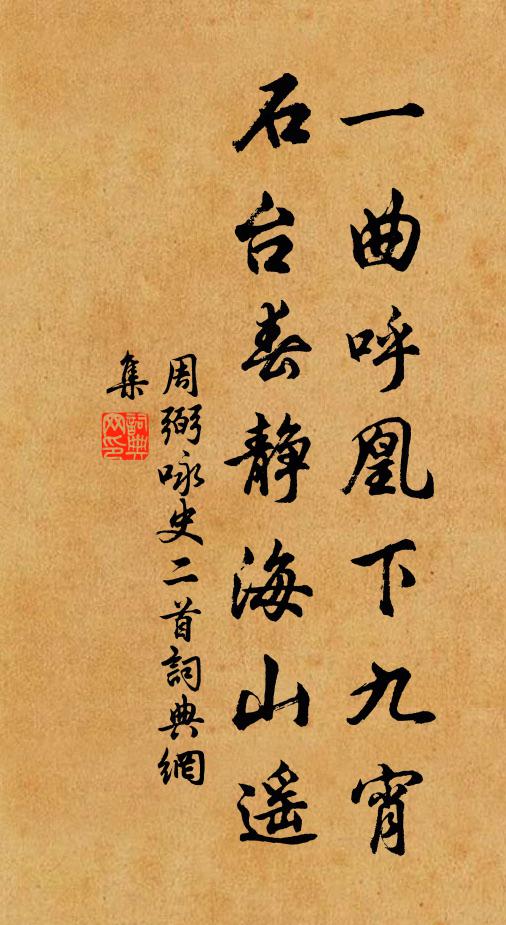 一曲呼凰下九宵
石台春静海山遥
周弼咏史二首詞典網
集
詞典網印